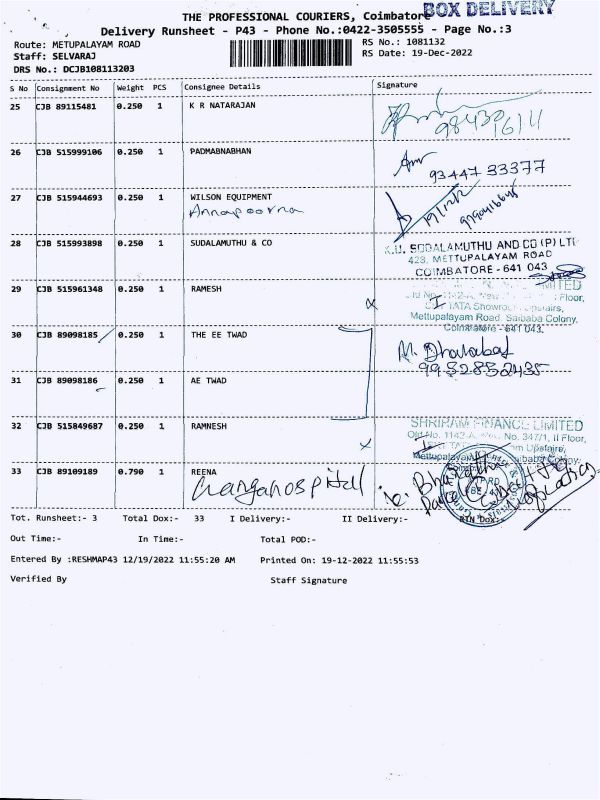 BOX DELIVERY
THE PROFESSIONAL COURIERS, Coimbatore
Delivery Runsheet - P43 - Phone No.:0422-3505555 - Page No.:3
Route: METUPALAYAM ROAD
RS No.: 1081132
Staff: SELVARAJ
RS Date: 19-Dec-2022
DRS No.: DCJB108113203
S No Consignment No Weight PCS Consignee Details Signature
25 CJB 89115481 0.250 1 K R NATARAJAN
26 CJB 515999106 0.250 1 PADMABNABHAN
93447 33377
27 CJB 515944693 0.250 1 WILSON EQUIPMENT
Annapoorna
28 CJB 515993898 0.250 1 SUDALAMUTHU & CO
K.U. SODALAMUTHU AND CO (P) LTD
423, METTUPALAYAM ROAD
COIMBATORE - 641 043
29 CJB 515961348 0.250 1 RAMESH
LIMITED
Floor,
TATA Showroom Upstairs,
Mettupalayam Road, Saibaba Colony,
Coimbatore - 641 043.
30 CJB 89098185 0.250 1 THE EE TWAD
M. Dhanabal
9952852435
31 CJB 89098186 0.250 1 AE TWAD
32 CJB 515849687 0.250 1 RAMNESH
SHRIRAM FINANCE LIMITED
Old No. 1142-A, New No. 347/1, II Floor,
Upstairs,
Mettupalayam Saibaba Colony,
33 CJB 89109189 0.790 1 REENA
Gangahospital
Tot. Runsheet:- 3 Total Dox:- 33 I Delivery:- II Delivery:- RTN Dox:-
Out Time:- In Time:- Total POD:-
Entered By :RESHMAP43 12/19/2022 11:55:20 AM Printed On: 19-12-2022 11:55:53
Verified By Staff Signature